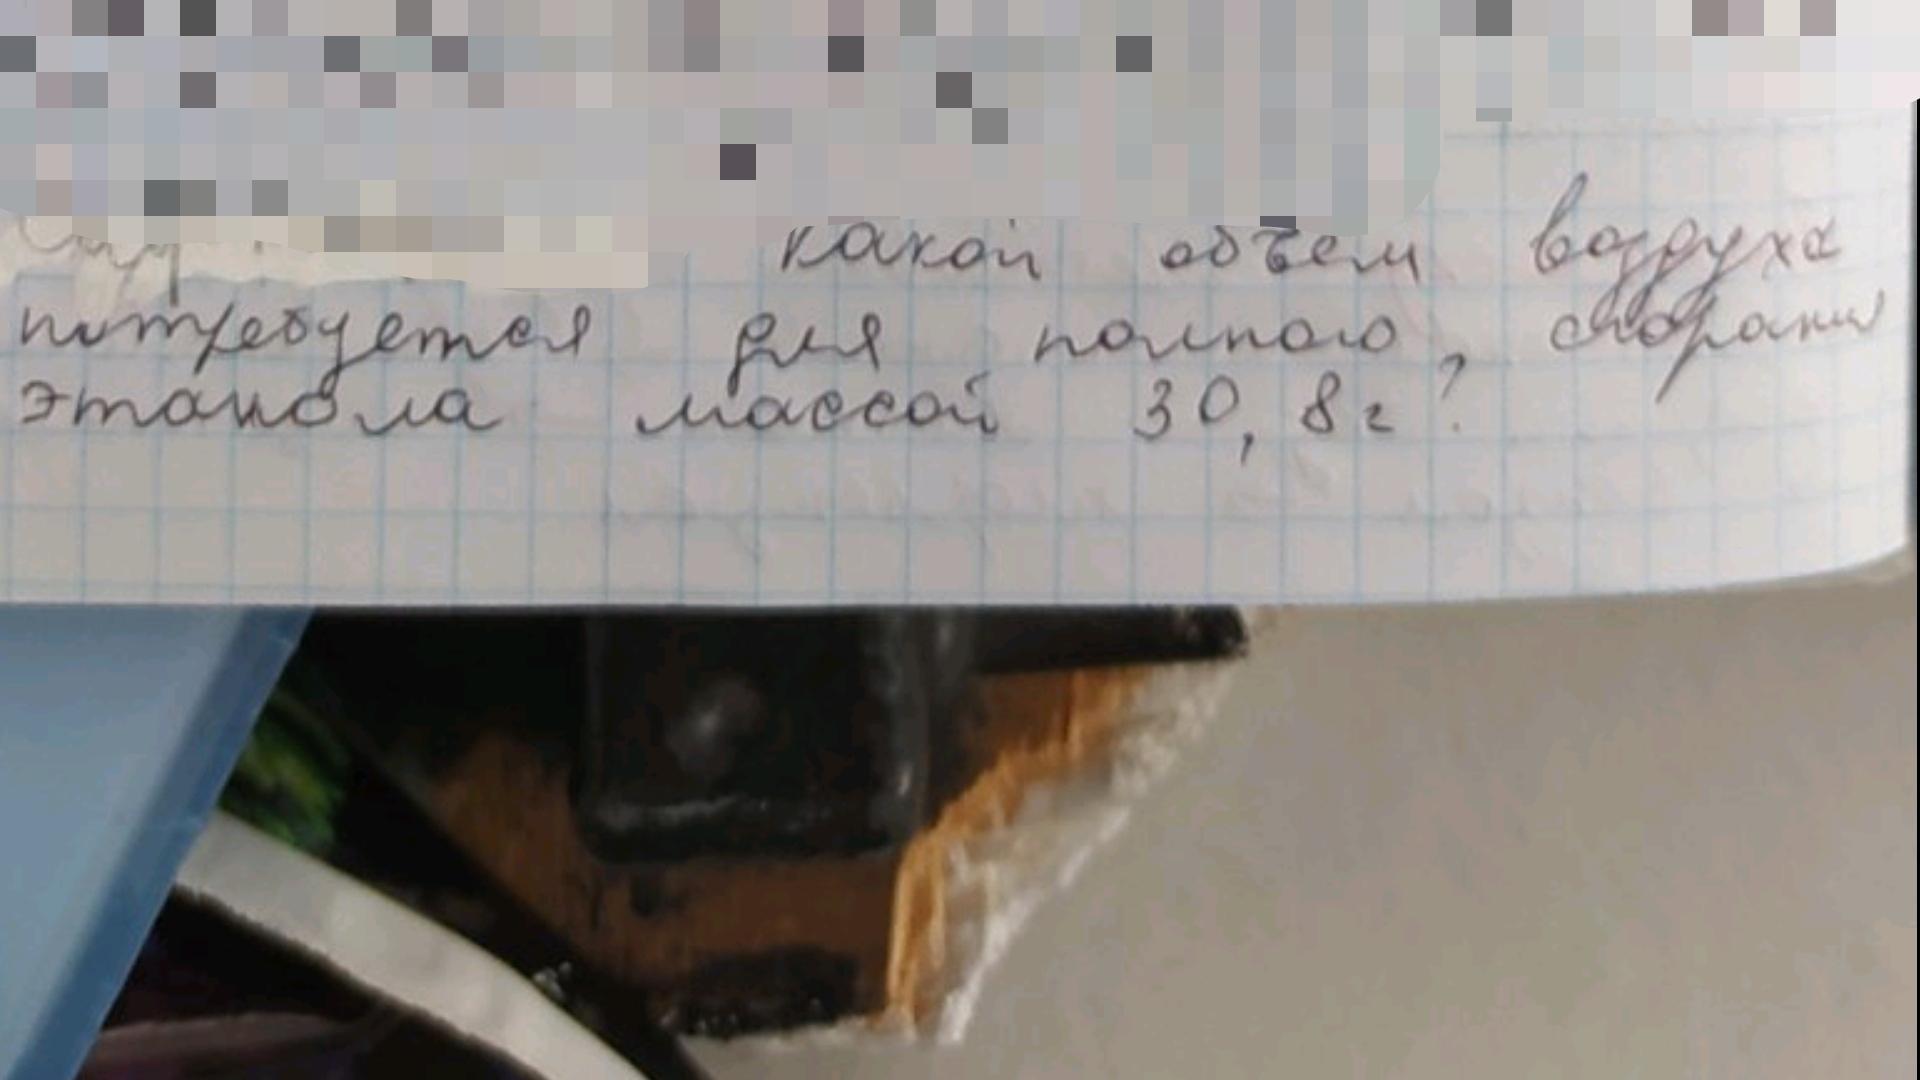 какой объем воздуха
потребуется для полного, сгорания
этанола массой 30,8г?